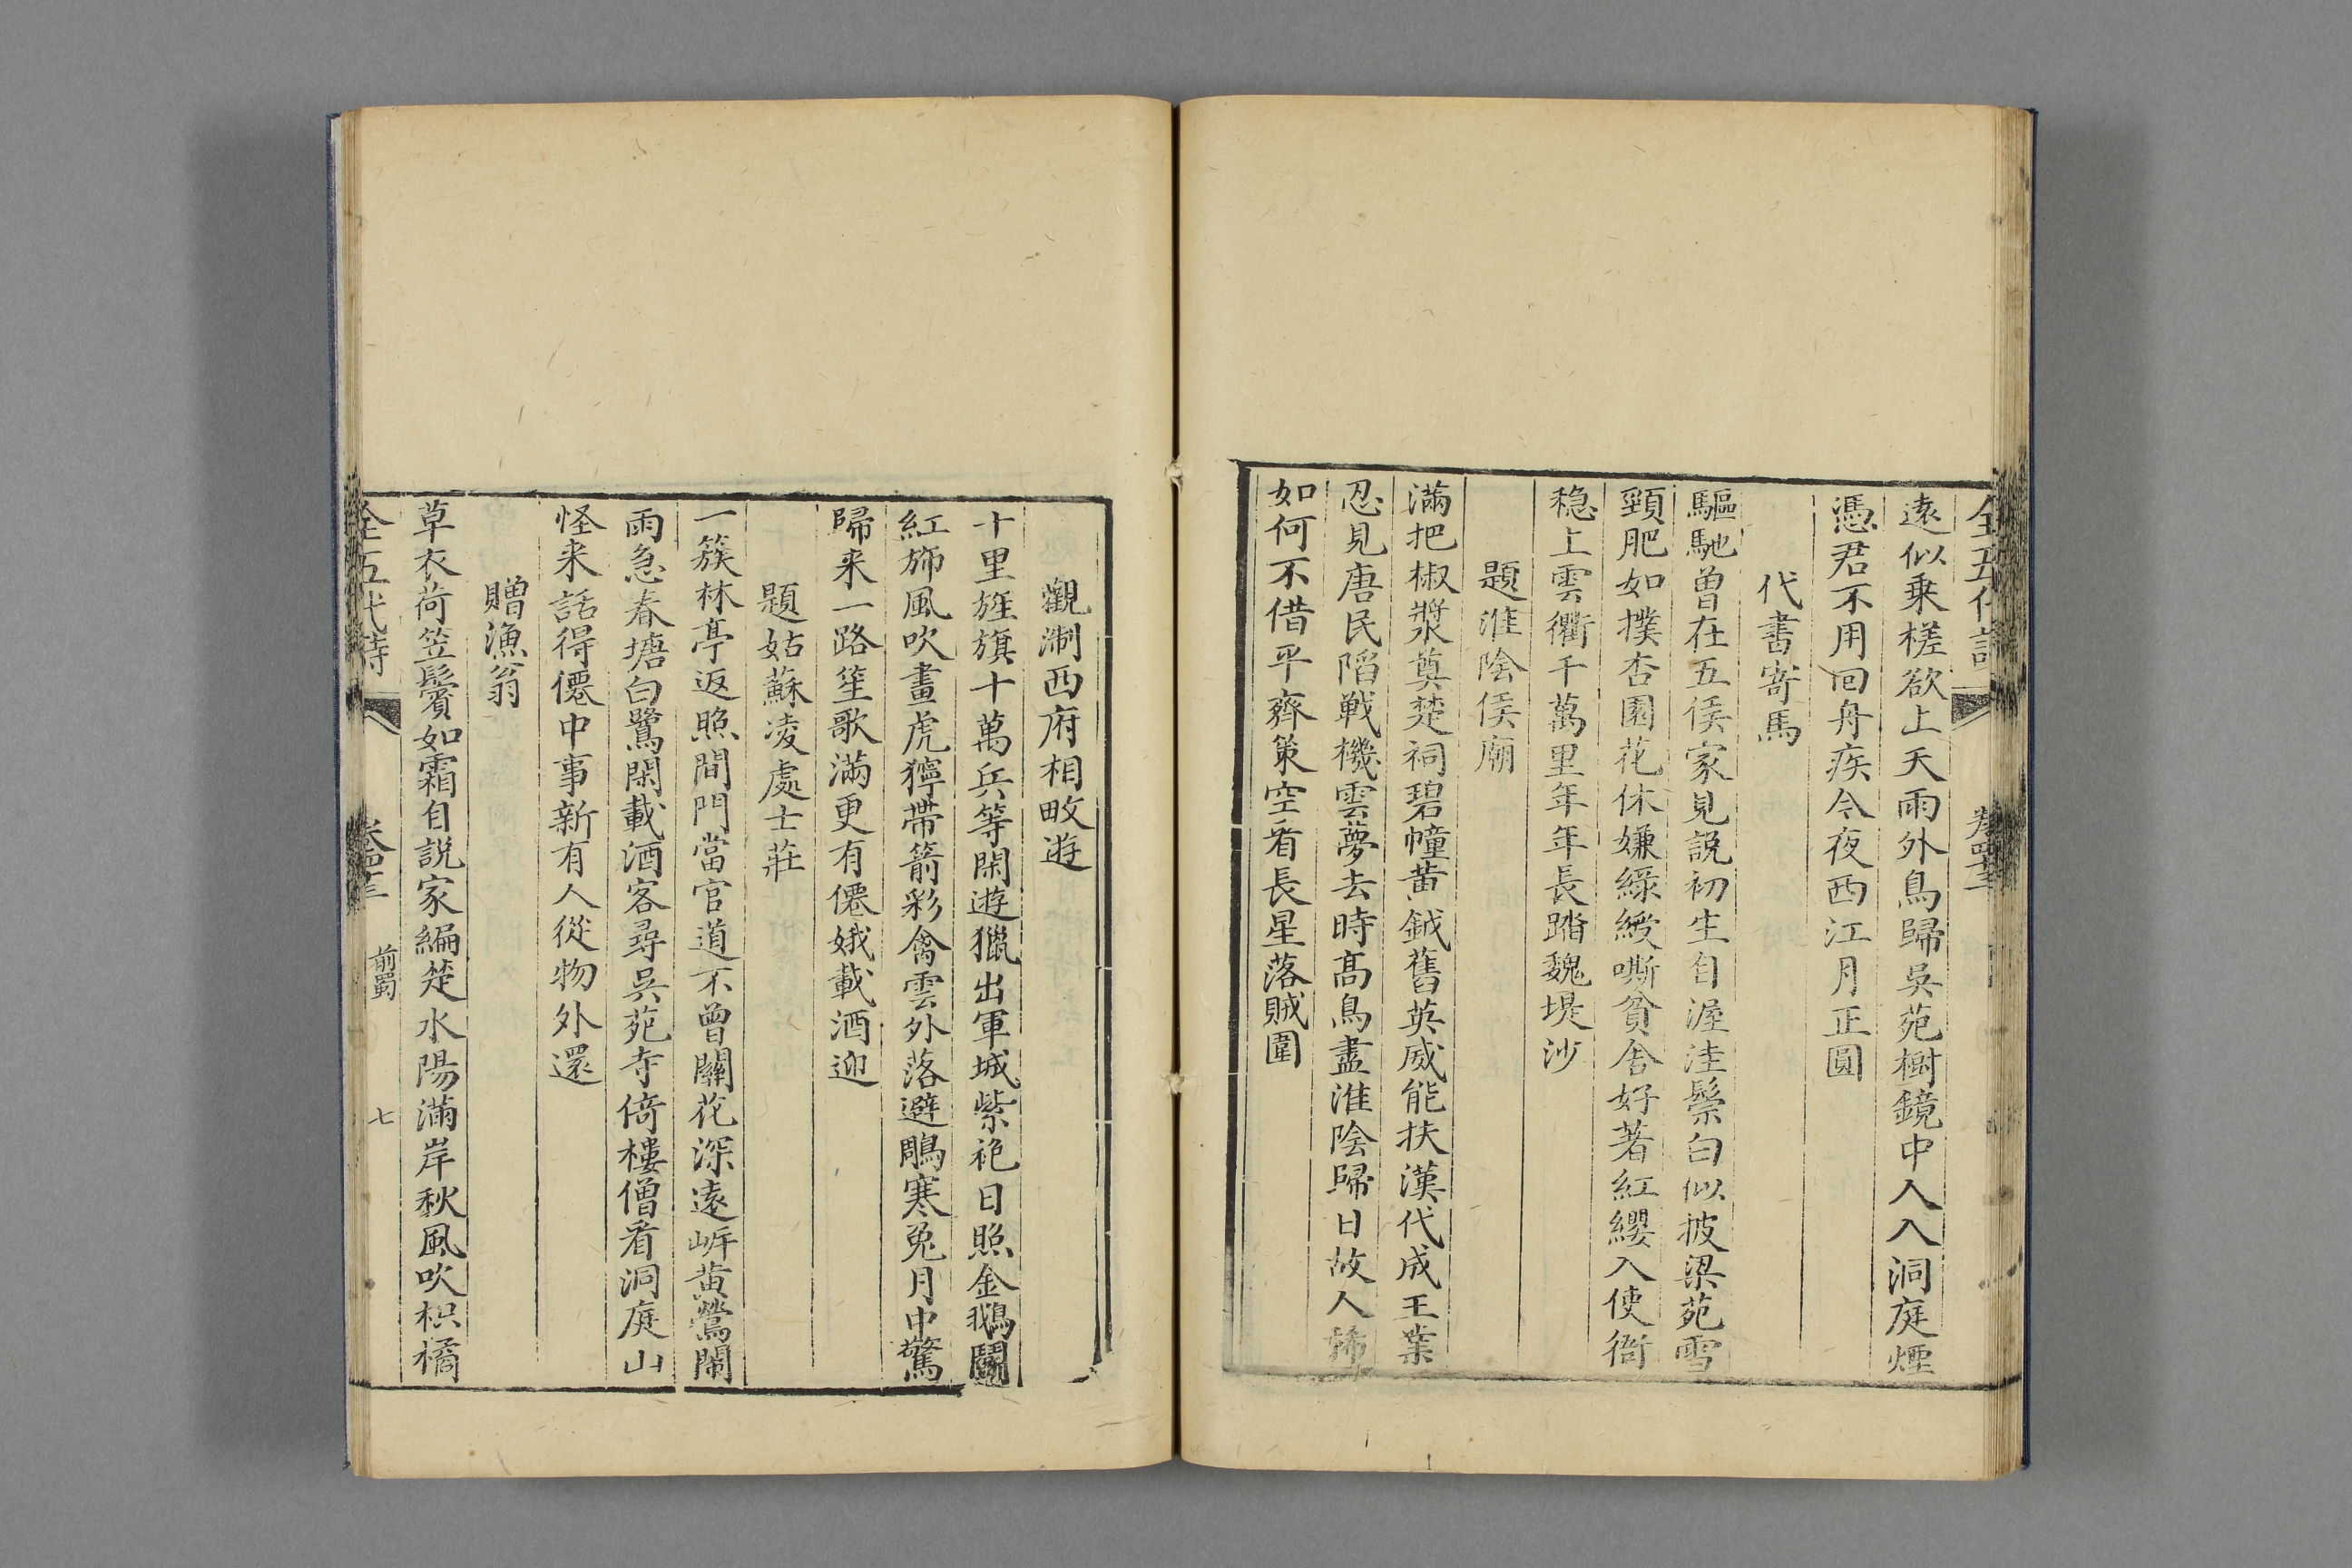 遠似乘槎欲上天雨外鳥歸吳苑樹鏡中人入洞庭煙
憑君不用回舟疾今夜西江月正圓
代書寄馬
驅馳曾在五侯家見說初生自渥洼鬃白似披梁苑雪
頸肥如撲杏園花休嫌綠綬嘶貧舍好著紅纓入使衙
穏上雲衢千萬里年年長踏魏堤沙
題淮陰侯廟
滿把椒漿奠楚祠碧幢黃鉞舊英威能扶漢代成王業
忍見唐民陷戰機雲夢去時高鳥盡淮陰歸日故人稀
如何不借平齊策空看長星落賊圍
觀浙西府相畋遊
十里旌旗十萬兵等閑遊獵出軍城紫袍日照金鵝鬭
紅斾風吹畫虎獰帶箭彩禽雲外落避鵰寒兔月中驚
歸来一路笙歌滿更有僊娥載酒迎
題姑蘇凌處士莊
一簇林亭返照間門當官道不曾關花深遠岸黃鶯鬧
雨急春塘白鷺閑載酒客尋吳苑寺倚樓僧看洞庭山
怪来話得僊中事新有人從物外還
贈漁翁
草衣荷笠鬢如霜自說家編楚水陽滿岸秋風吹枳橘
全五代詩
前蜀
七